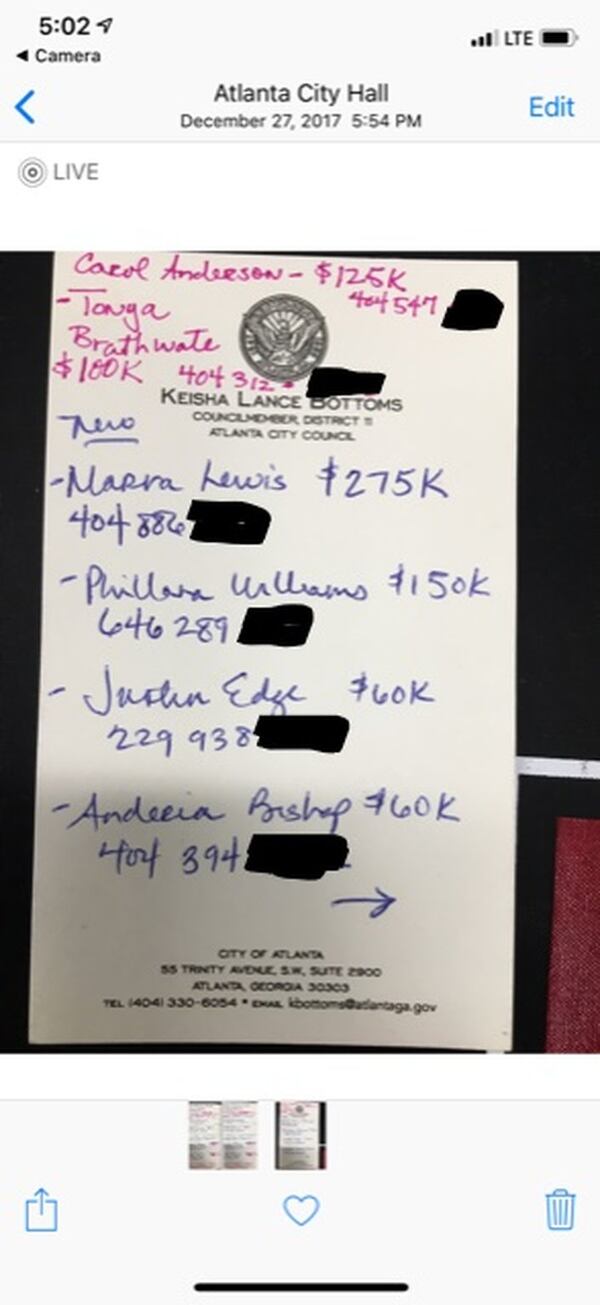 5:02
LTE
Camera
Atlanta City Hall
December 27, 2017 5:54 PM
Edit
LIVE
Carol Anderson - $125K
404 547
- Tonya
Brathwate
$100K 404 312
KEISHA LANCE BOTTOMS
COUNCILMEMBER, DISTRICT 11
ATLANTA CITY COUNCIL
New
- Marva Lewis $275K
404 886
- Phillana Williams $150K
646 289
- Justin Edge $60K
229 938
- Andrecia Bishop $60K
404 394
→
CITY OF ATLANTA
55 TRINITY AVENUE, S.W, SUITE 2900
ATLANTA, GEORGIA 30303
TEL (404) 330-6054 * EMAIL kbottoms@atlantaga.gov